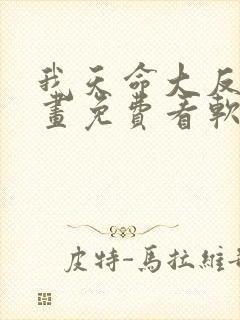 我天命大反
畫免費看軟
皮特-馬拉維